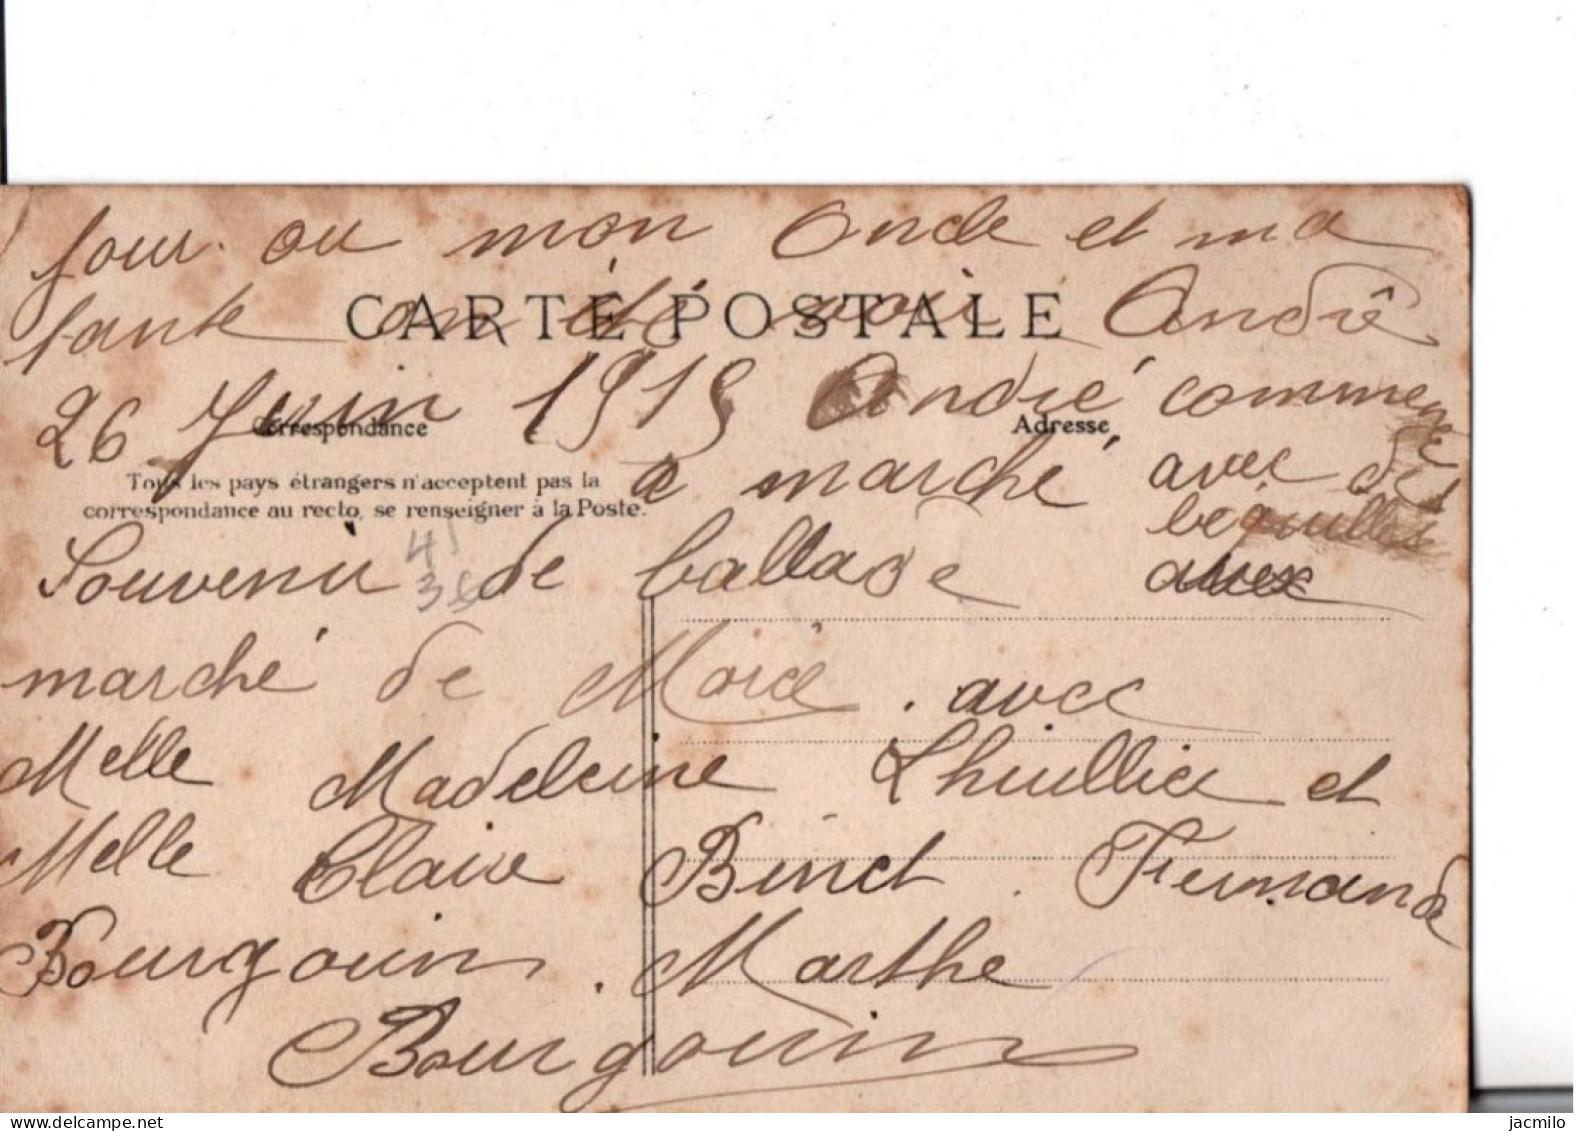 jour ou mon Oncle et ma
tante on été voir André
CARTE POSTALE
26 Juin 1915 André commence
Correspondance
Adresse
Tous les pays étrangers n'acceptent pas la
correspondance au recto, se renseigner à la Poste.
a marché avec des
béquilles
41
38
Souvenir de ballade aux
marché de Moré. avec
Melle Madeleine Lhuillier et
Melle Claire Binet. Fernande
Bourgouin. Marthe
Bourgouin
jacmilo